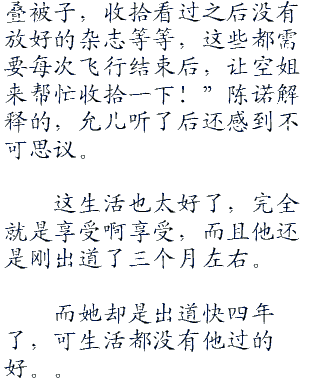 叠被子，收拾看过之后没有
放好的杂志等等，这些都需
要每次飞行结束后，让空姐
来帮忙收拾一下！”陈诺解
释的，允儿听了后还感到不
可思议。
这生活也太好了，完全
就是享受啊享受，而且他还
是刚出道了三个月左右。
而她却是出道快四年
了，可生活都没有他过的
好。。